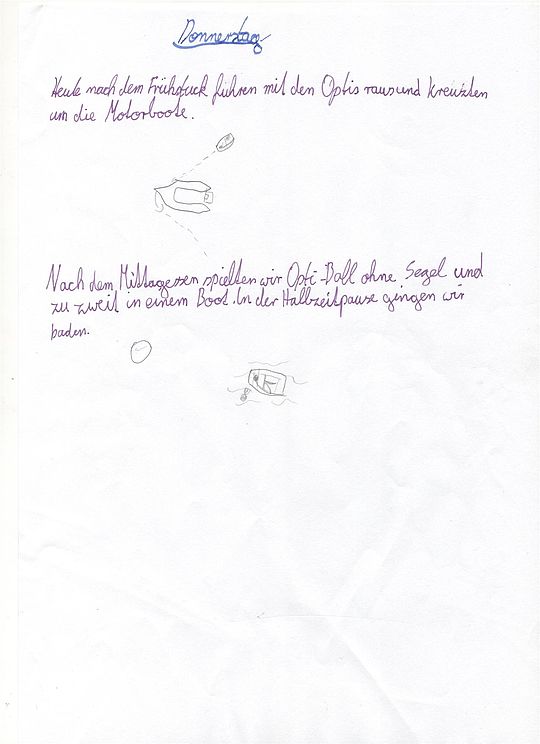 Donnerstag
Heute nach dem Frühstuck fuhren mit den Optis raus und kreuzten
um die Motorboote.
Nach dem Mittagessen spielten wir Opti-Ball ohne Segel und
zu zweit in einem Boot. In der Halbzeitpause gingen wir
baden.